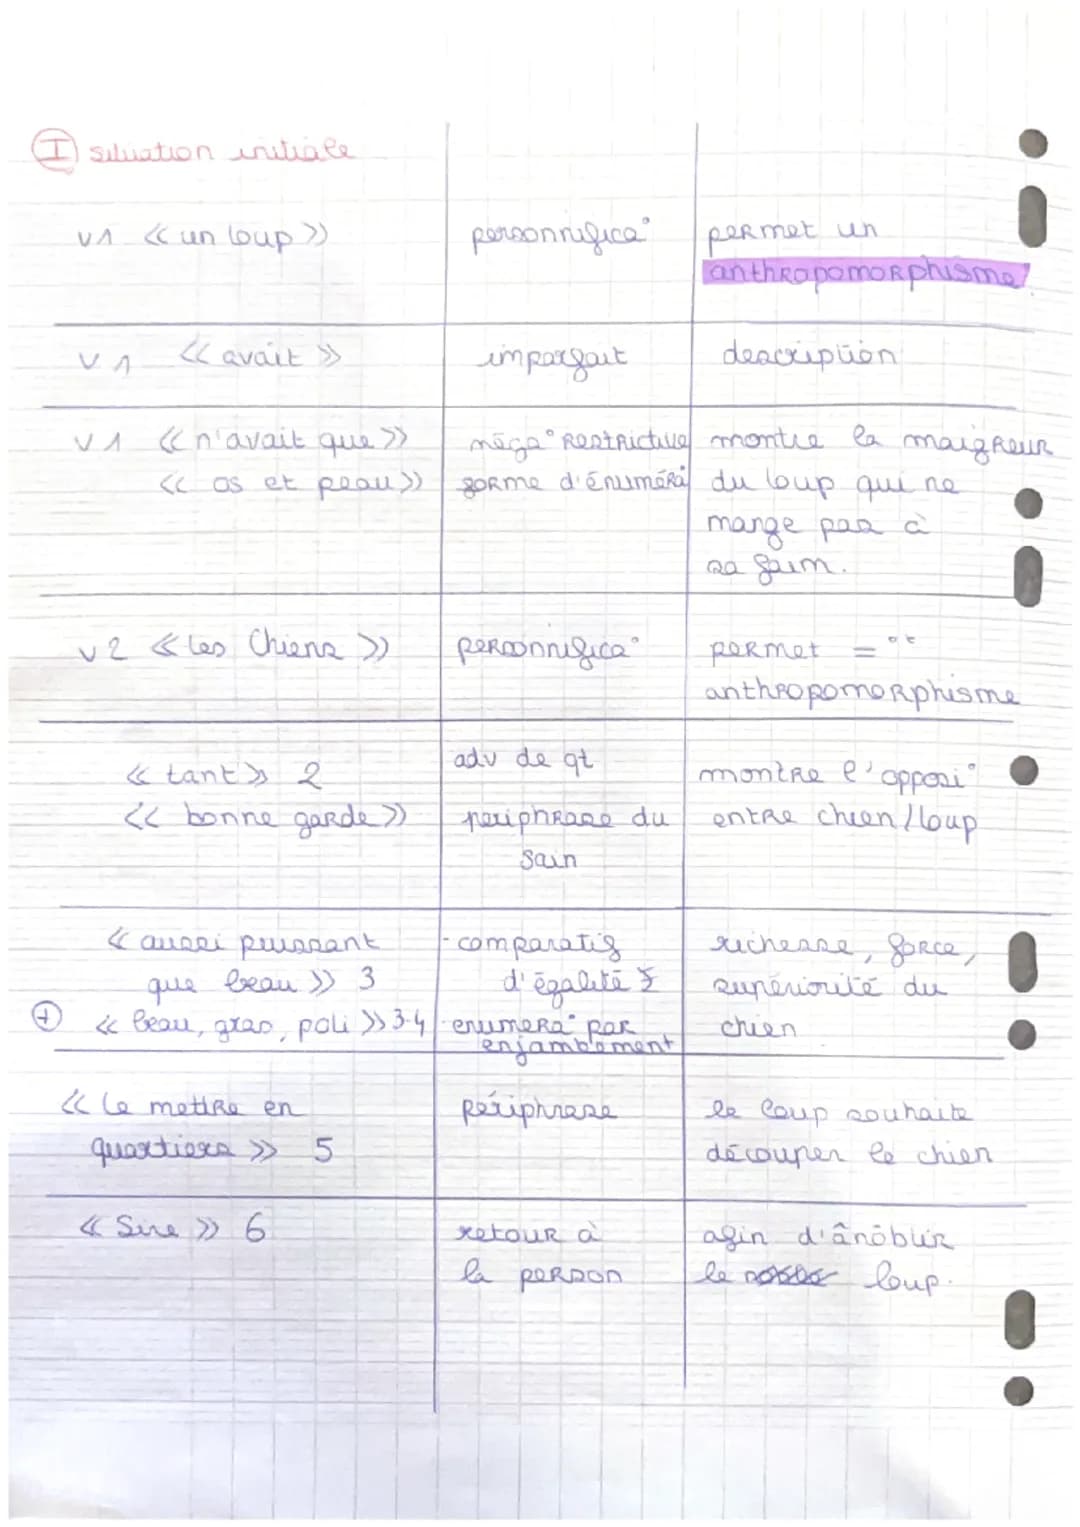 I situation initiale
v1 << un loup >> personnifica° permet un
anthropomorphisme
v1 << avait >> imparfait description
v1 << n'avait que >> néga° restrictive montre la maigreur
<< os et peau >> forme d'énuméra° du loup qui ne
mange pas à
sa faim.
v2 << les Chiens >> personnifica° permet = °t
anthropomorphisme
<< tant >> 2 adv de qt montre l'opposi°
<< bonne garde >> periphrase du entre chien/loup
sain
<< aussi puissant - comparatif richesse, force,
que beau >> 3 d'égalité supériorité du
+ << beau, gras, poli >> 3-4 - enuméra° par chien
enjambement
<< le mettre en périphrase le loup souhaite
quartiers >> 5 découper le chien
<< Sire >> 6 retour à afin d'ânôblir
la person le loup.